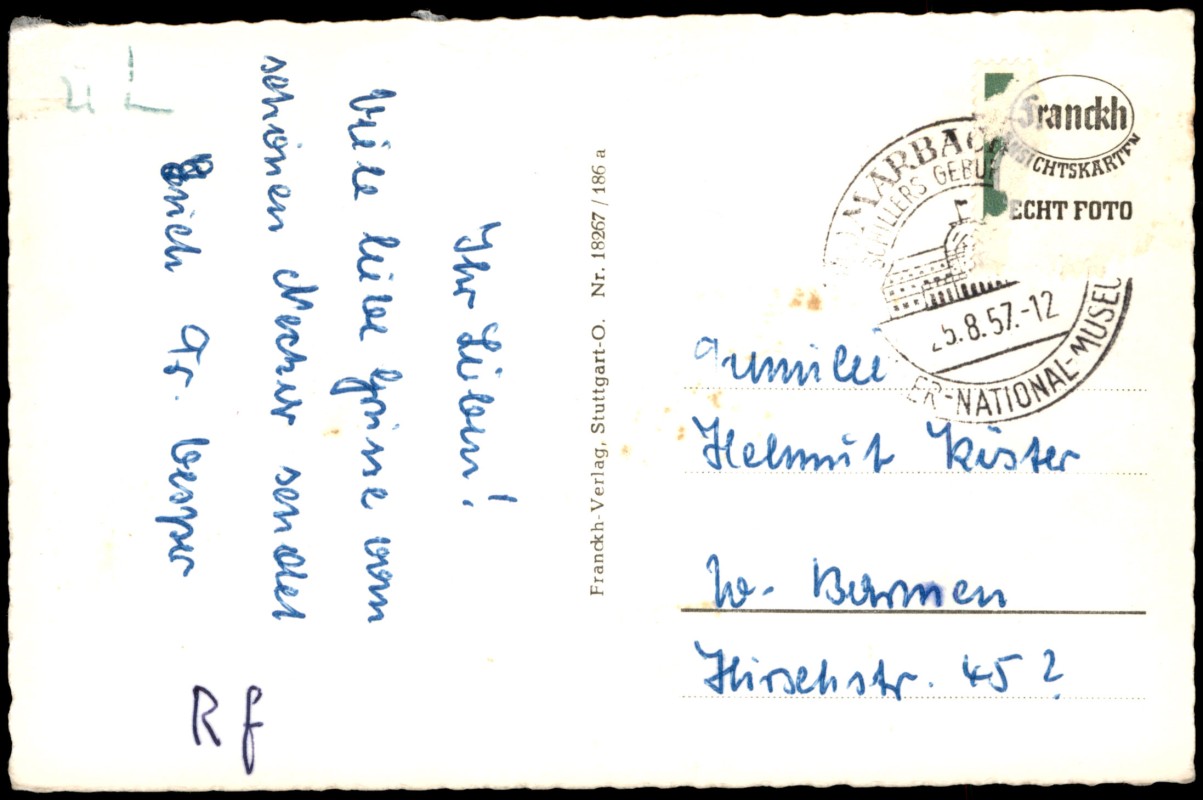 Ihr Lieben!
Viele liebe Grüsse vom
schönen Neckar sendet
Euch Fr. Vesper
Rf
Franckh-Verlag, Stuttgart-O. Nr. 18267/186 a
Franckh
ANSICHTSKARTEN
ECHT FOTO
MARBACH
SCHILLERS GEBU
25.8.57.-12
ER-NATIONAL-MUSEU
Familie
Helmut Küster
W.- Barmen
Hirschstr. 45?